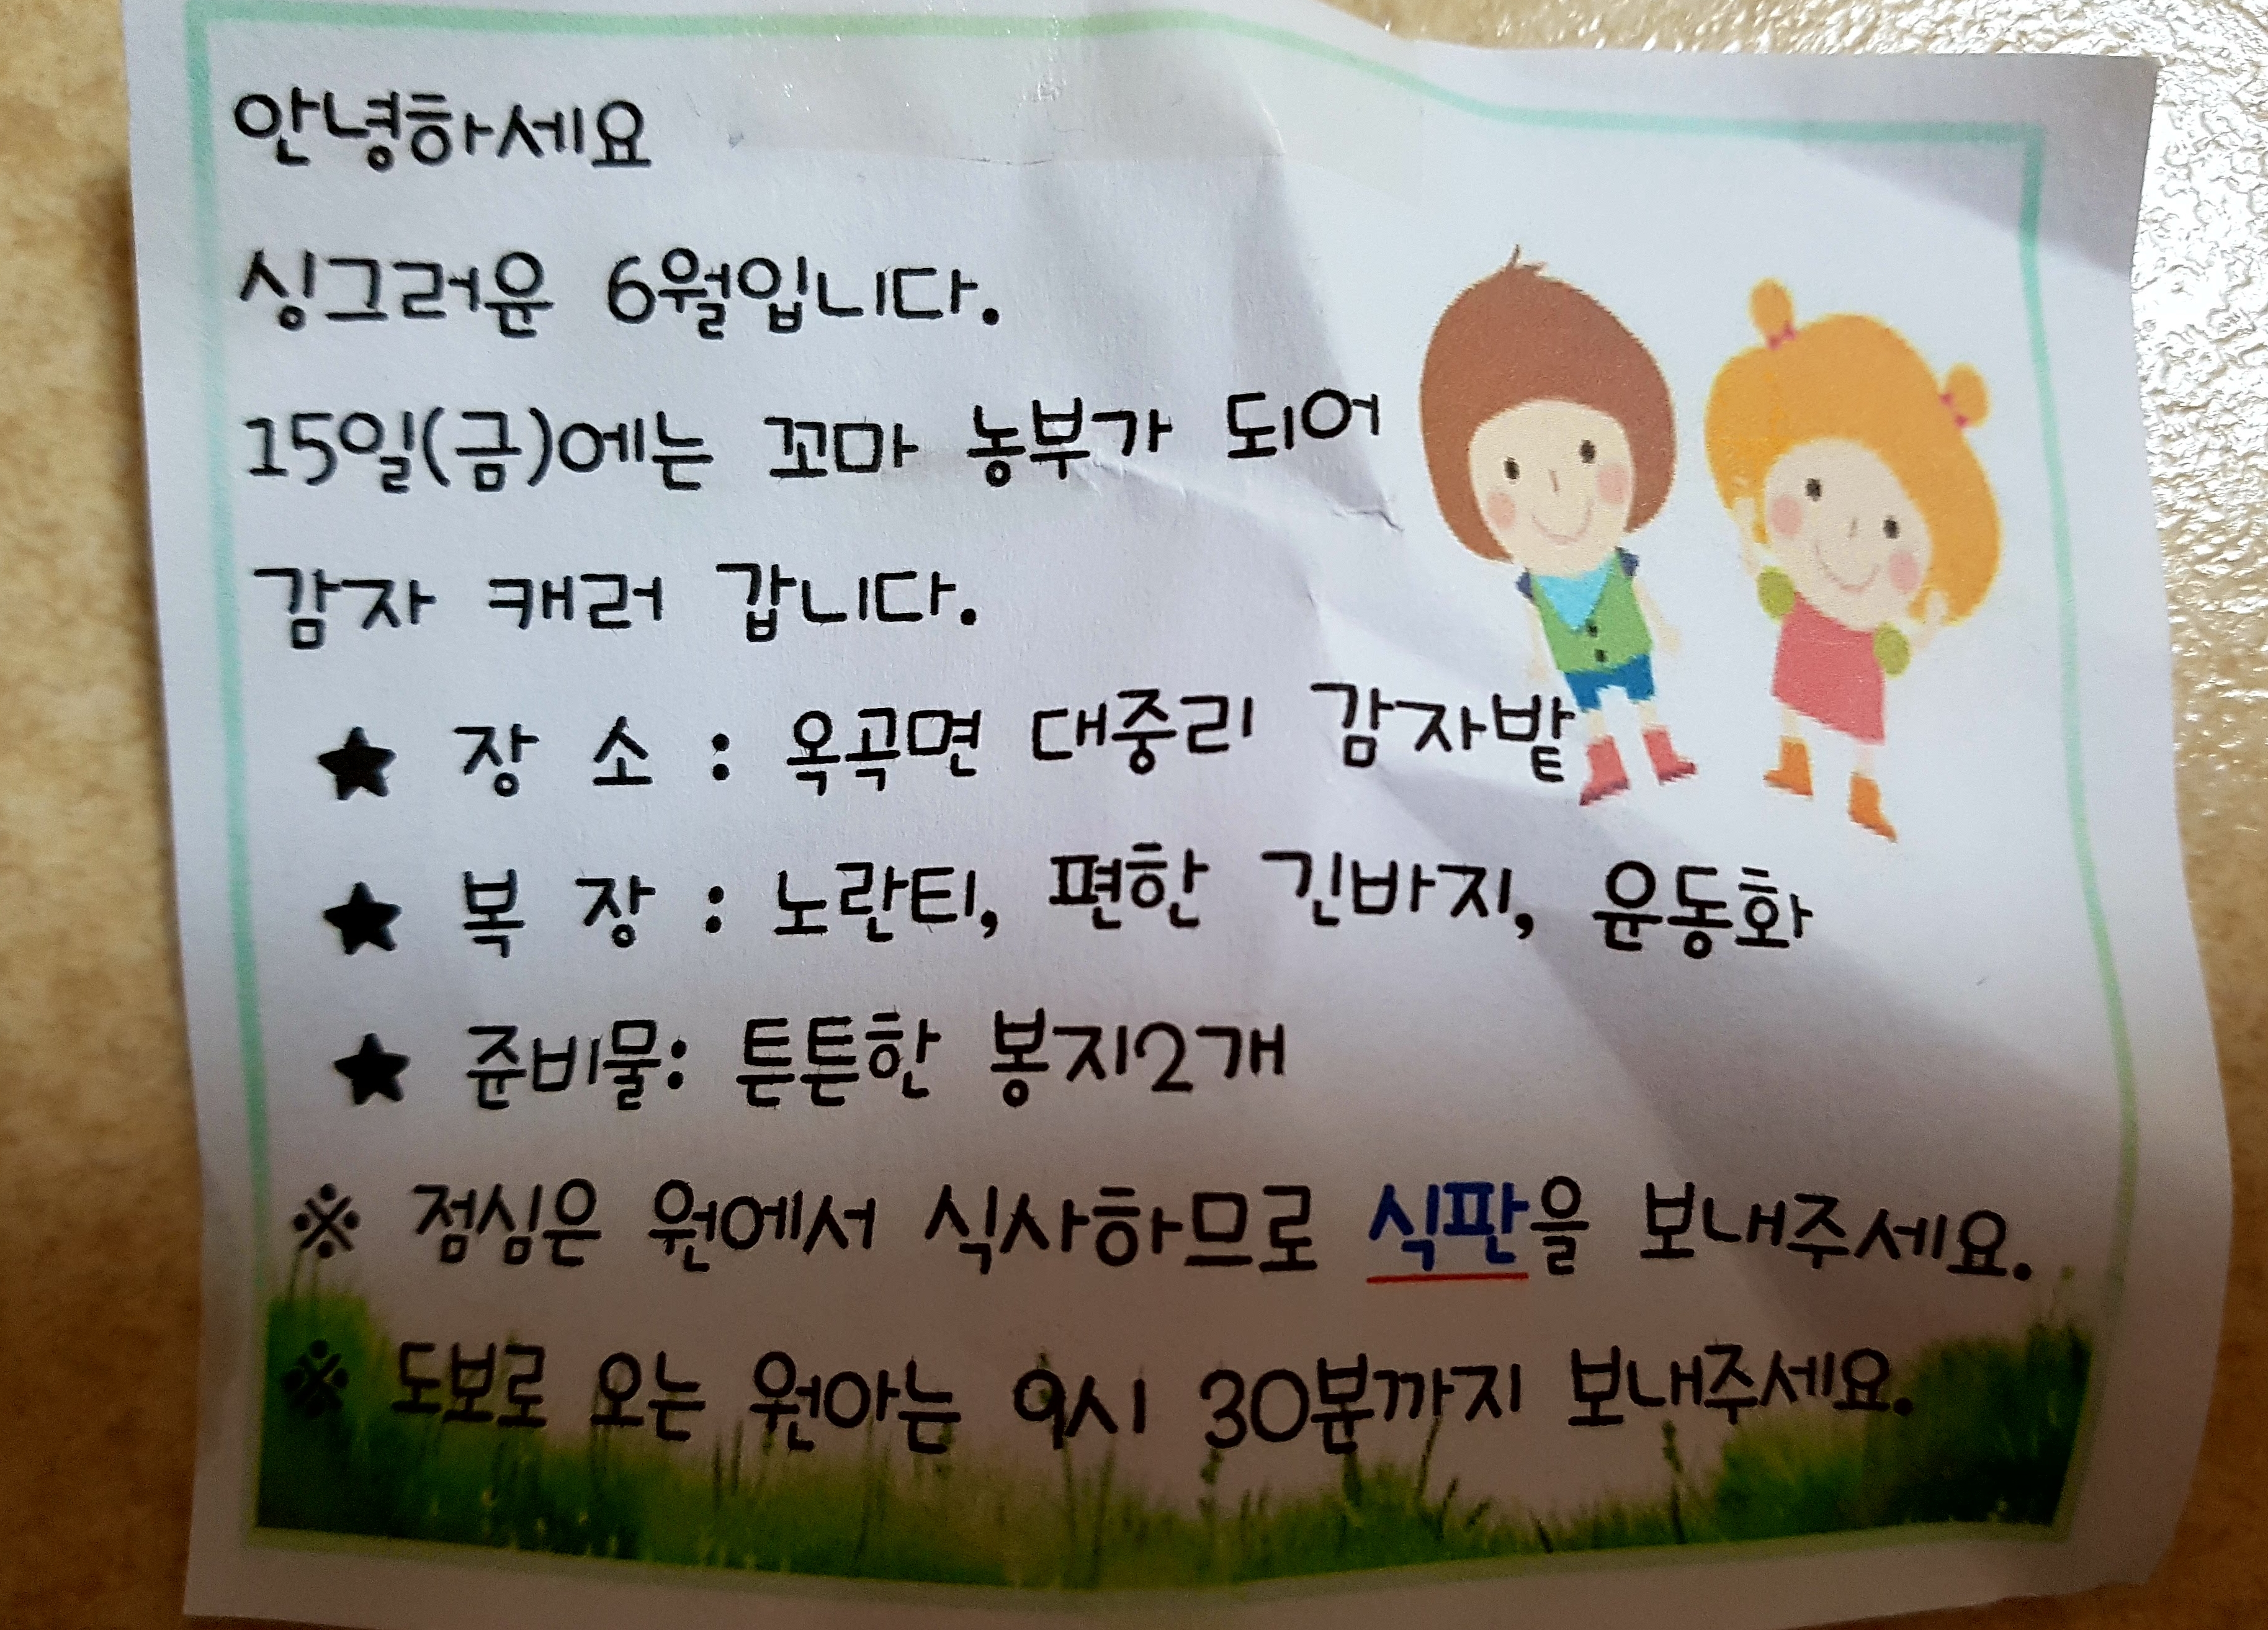 안녕하세요
싱그러운 6월입니다.
15일(금)에는 꼬마 농부가 되어
감자 캐러 갑니다.
★ 장 소 : 옥곡면 대중리 감자밭
★ 복 장 : 노란티, 편한 긴바지, 운동화
★ 준비물: 튼튼한 봉지2개
※ 점심은 원에서 식사하므로 식판을 보내주세요.
※ 도보로 오는 원아는 9시 30분까지 보내주세요.